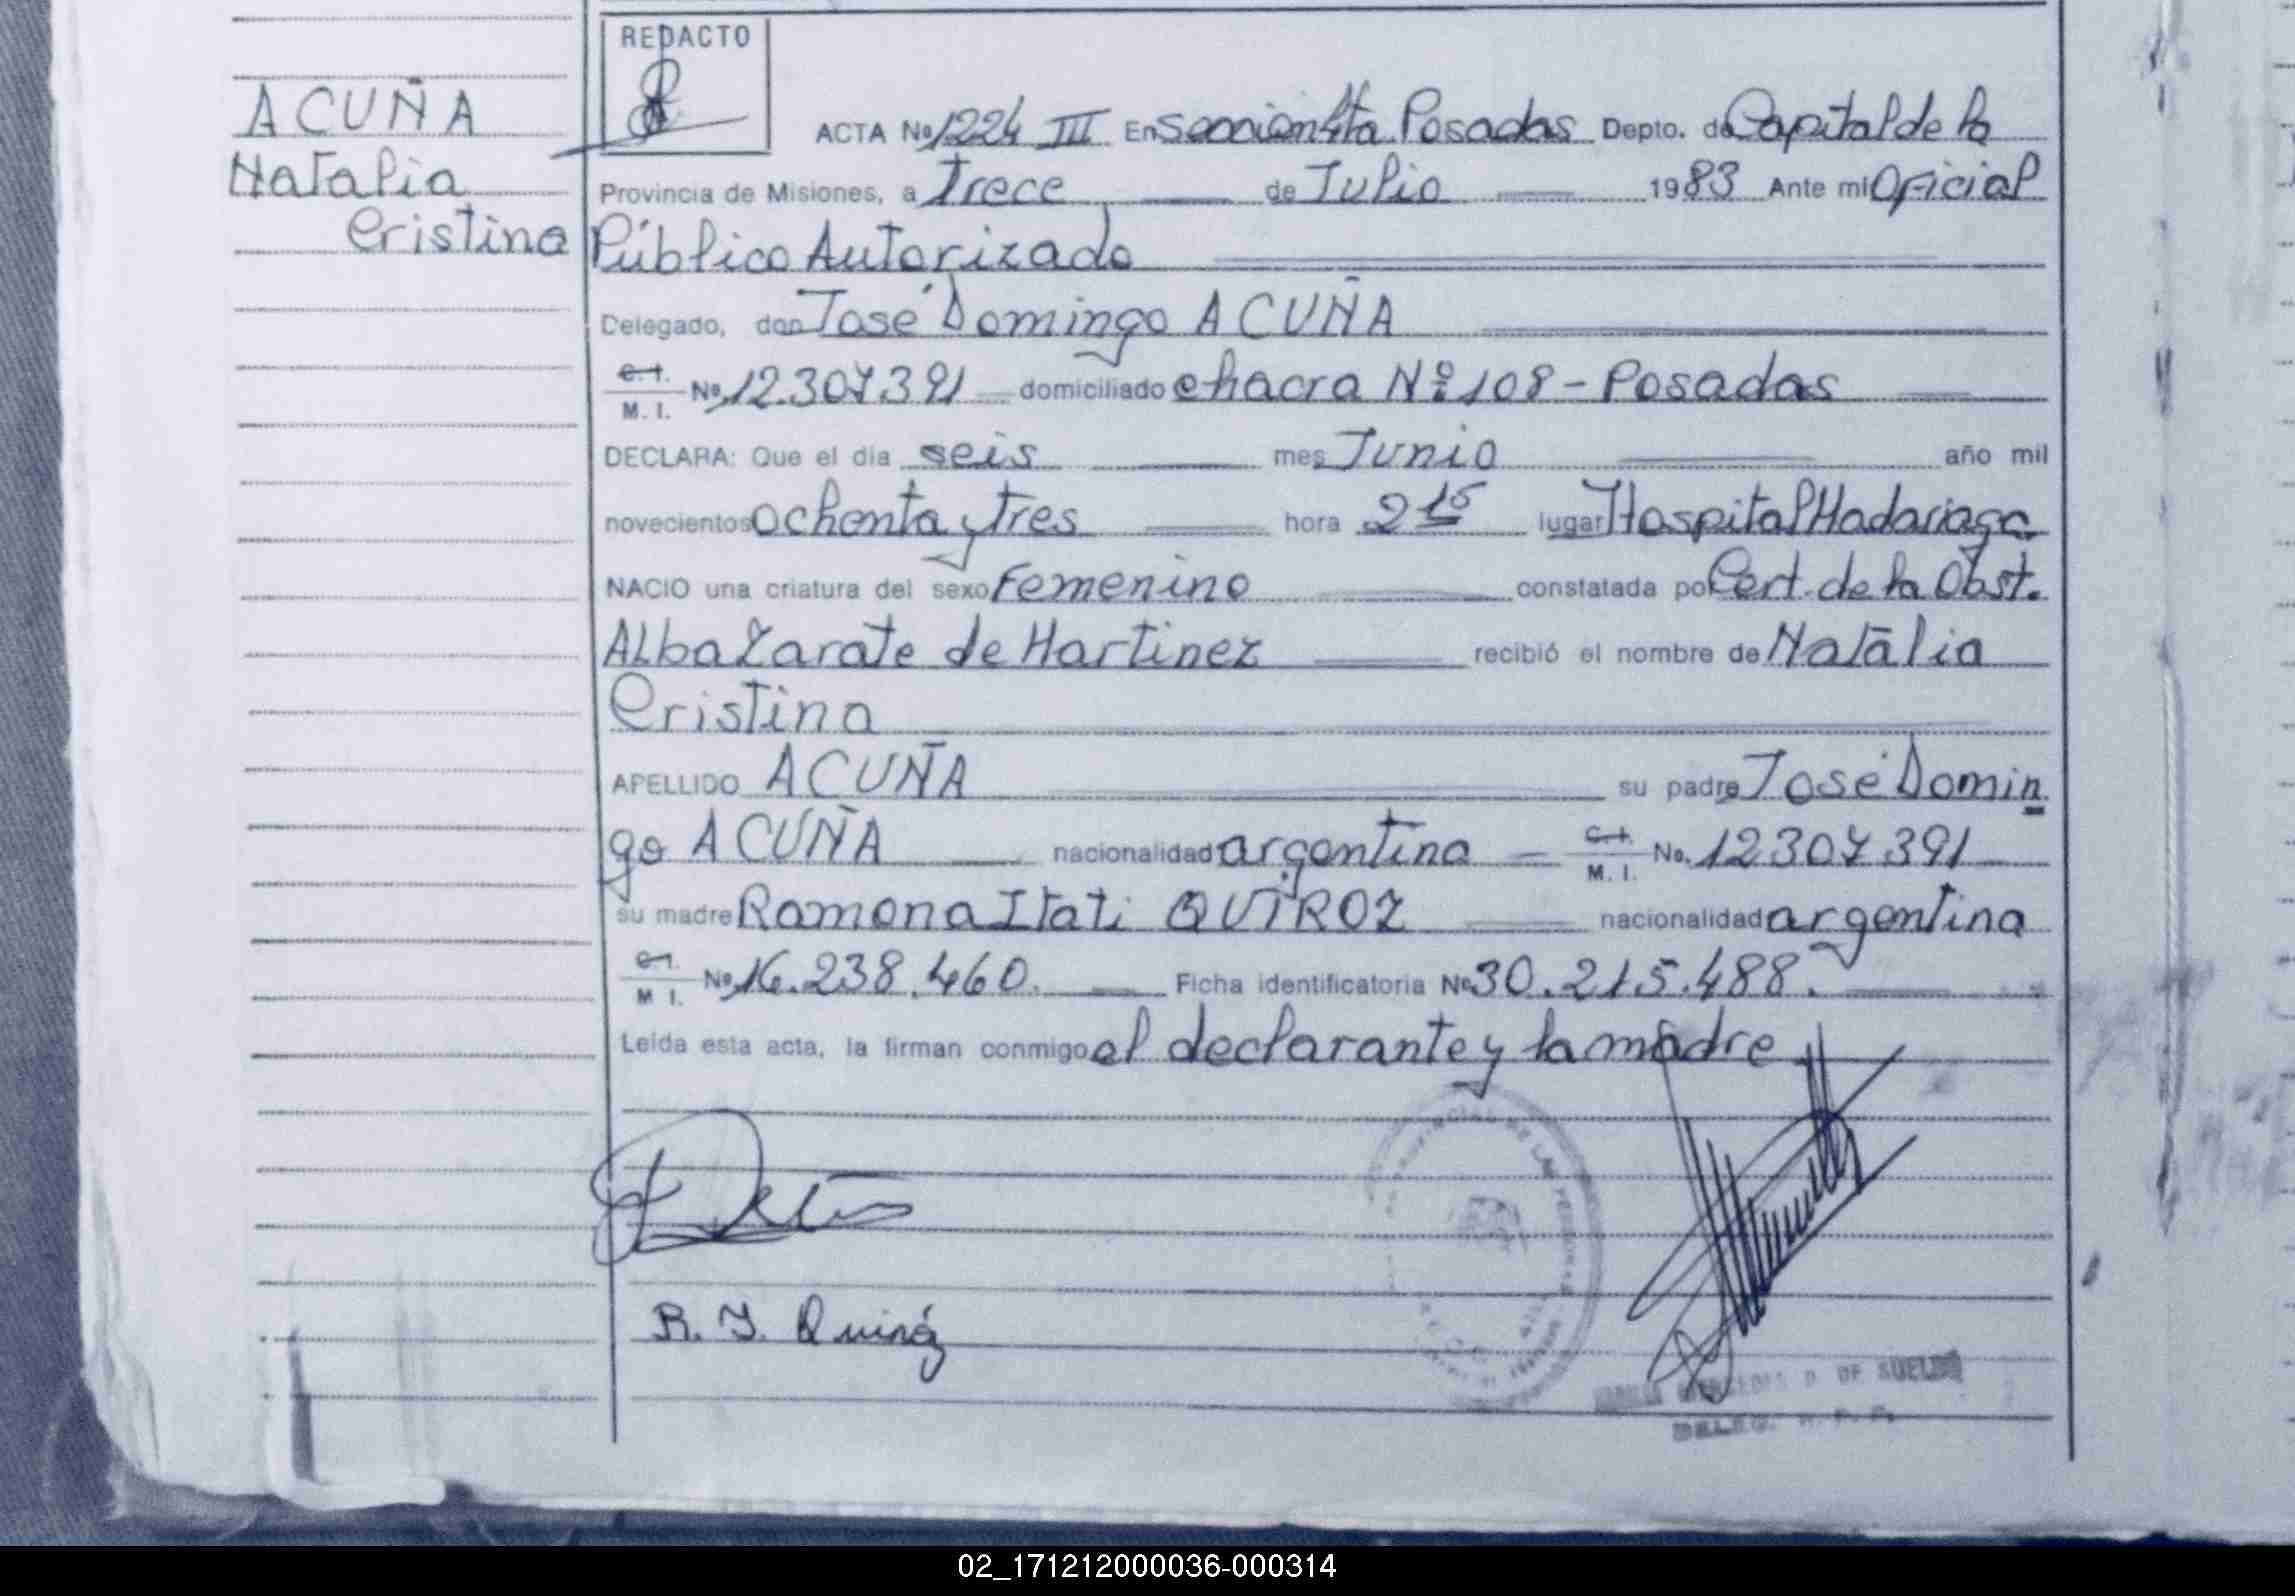 REDACTO
ACUÑA
Natalia
Cristina
ACTA Nº 1224 III En Sección 4ta Posadas Depto. de Capital de la
Provincia de Misiones, a Trece de Julio 1983 Ante mi Oficial
Público Autorizado
Delegado, don José Domingo ACUÑA
C.I. M.I. Nº 12.307.391 domiciliado chacra Nº 108 - Posadas
DECLARA: Que el día seis mes Junio año mil
novecientos ochenta y tres hora 2 15 lugar Hospital Madariaga
NACIO una criatura del sexo Femenino constatada por Cert. de la Obst.
Alba Zarate de Martinez recibió el nombre de Natalia
Cristina
APELLIDO ACUÑA su padre José Domin
go ACUÑA nacionalidad argentina C.I. M.I. No. 12307391
su madre Ramona Itati QUIROZ nacionalidad argentina
C.I. M I. Nº 16.238.460. Ficha identificatoria Nº 30.215.488.
Leída esta acta, la firman conmigo el declarante y la madre
R. I. Quiróz
D. DE SUELDO
02_171212000036-000314